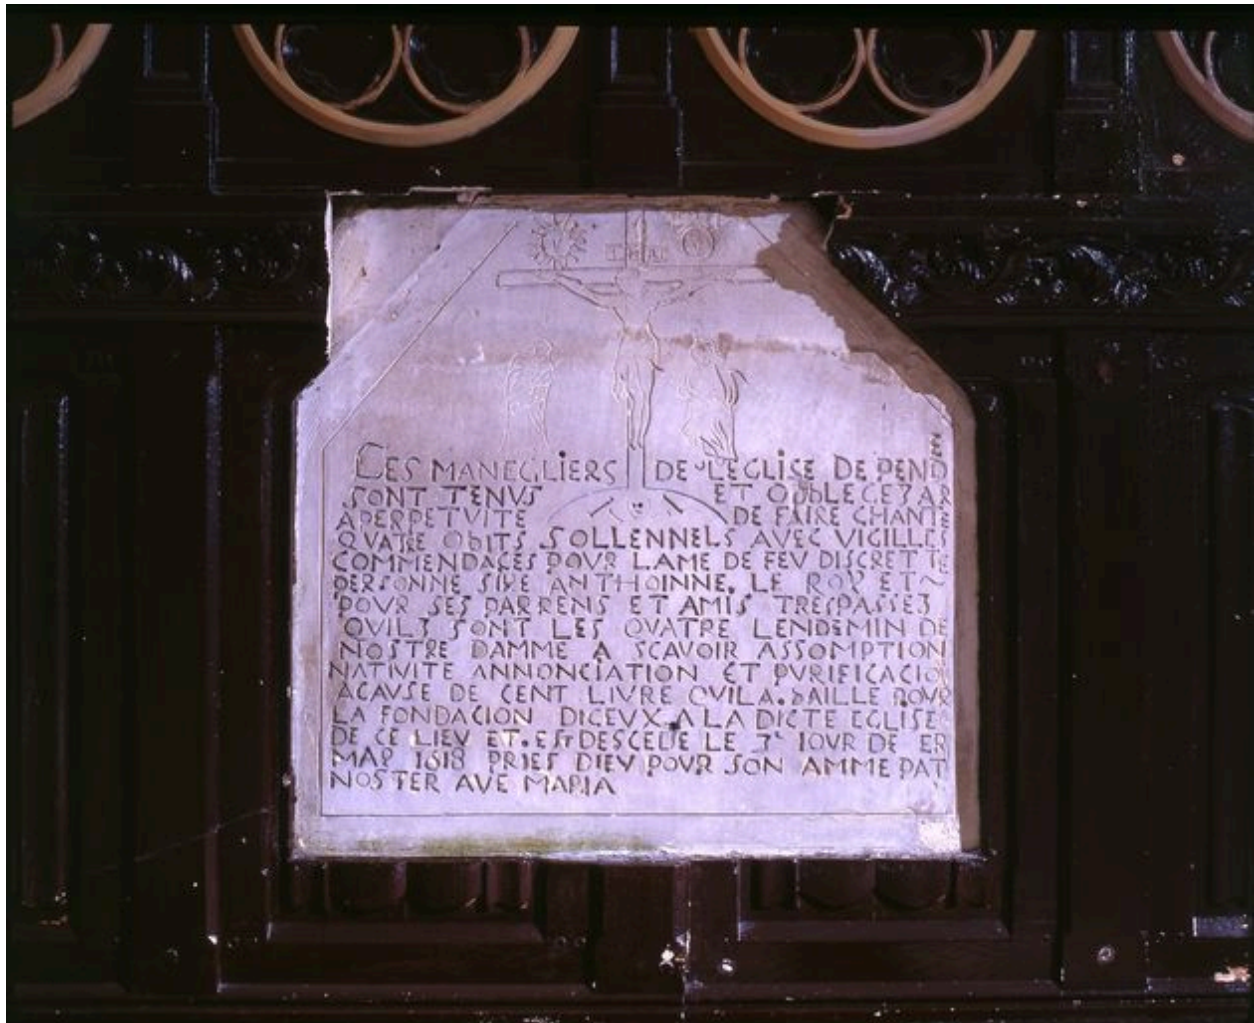 LES MANEGLIERS DE LEGLISE DE PEND
SONT TENVS ET OBLEGEZ AR
APERPETVITE DE FAIRE CHANTE
QVATRE OBITS SOLLENNELS AVEC VIGILLES
COMMENDACES POVR LAME DE FEV DISCRETTE
PERSONNE SIRE ANTHOINNE. LE ROY ET~
POVR SES PARRENS ET AMIS TRESPASSEZ
QVILZ SONT LES QVATRE LENDEMIN DE
NOSTRE DAMME A SCAVOIR ASSOMPTION
NATIVITE ANNONCIATION ET PVRIFICACIO
ACAVSE DE CENT LIVRE QVILA. BAILLE POVR
LA FONDACION DICEVX. A LA DICTE EGLISE
DE CE LIEV ET. EST DESCEDE LE 3e IOVR DE
MAR 1618 PRIES DIEV POVR SON AMME PAT
NOSTER AVE MARIA